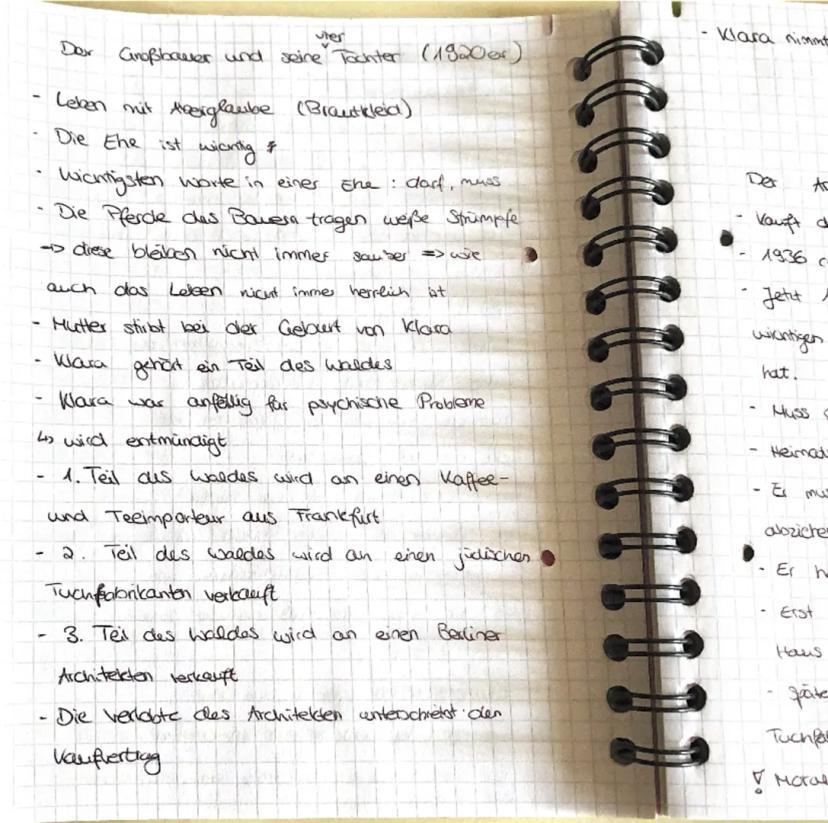 Der Großbauer und seine vier Töchter (1920er)
- Leben mit Aberglaube (Brautkleid)
- Die Ehe ist wichtig
- Wichtigsten Worte in einer Ehe : darf, muss
- Die Pferde des Bauern tragen weiße Strümpfe
=> diese bleiben nicht immer sauber => wie
auch das Leben nicht immer herrlich ist
- Mutter stirbt bei der Geburt von Klara
- Klara gehört ein Teil des Waldes
- Klara war anfällig für psychische Probleme
↳ wird entmündigt
- 1. Teil des Waldes wird an einen Kaffee-
und Teeimporteur aus Frankfurt
- 2. Teil des Waldes wird an einen jüdischen
Tuchfabrikanten verkauft
- 3. Teil des Waldes wird an einen Berliner
Architekten verkauft
- Die Verlobte des Architekten unterschreibt den
Kaufvertrag
- Klara nimmt
Der
- Kauft
- 1936
- Jetzt
wichtigen
hat.
- Muss
- Heimat
- Er
- Er
- Erst
Haus
-
! Moral